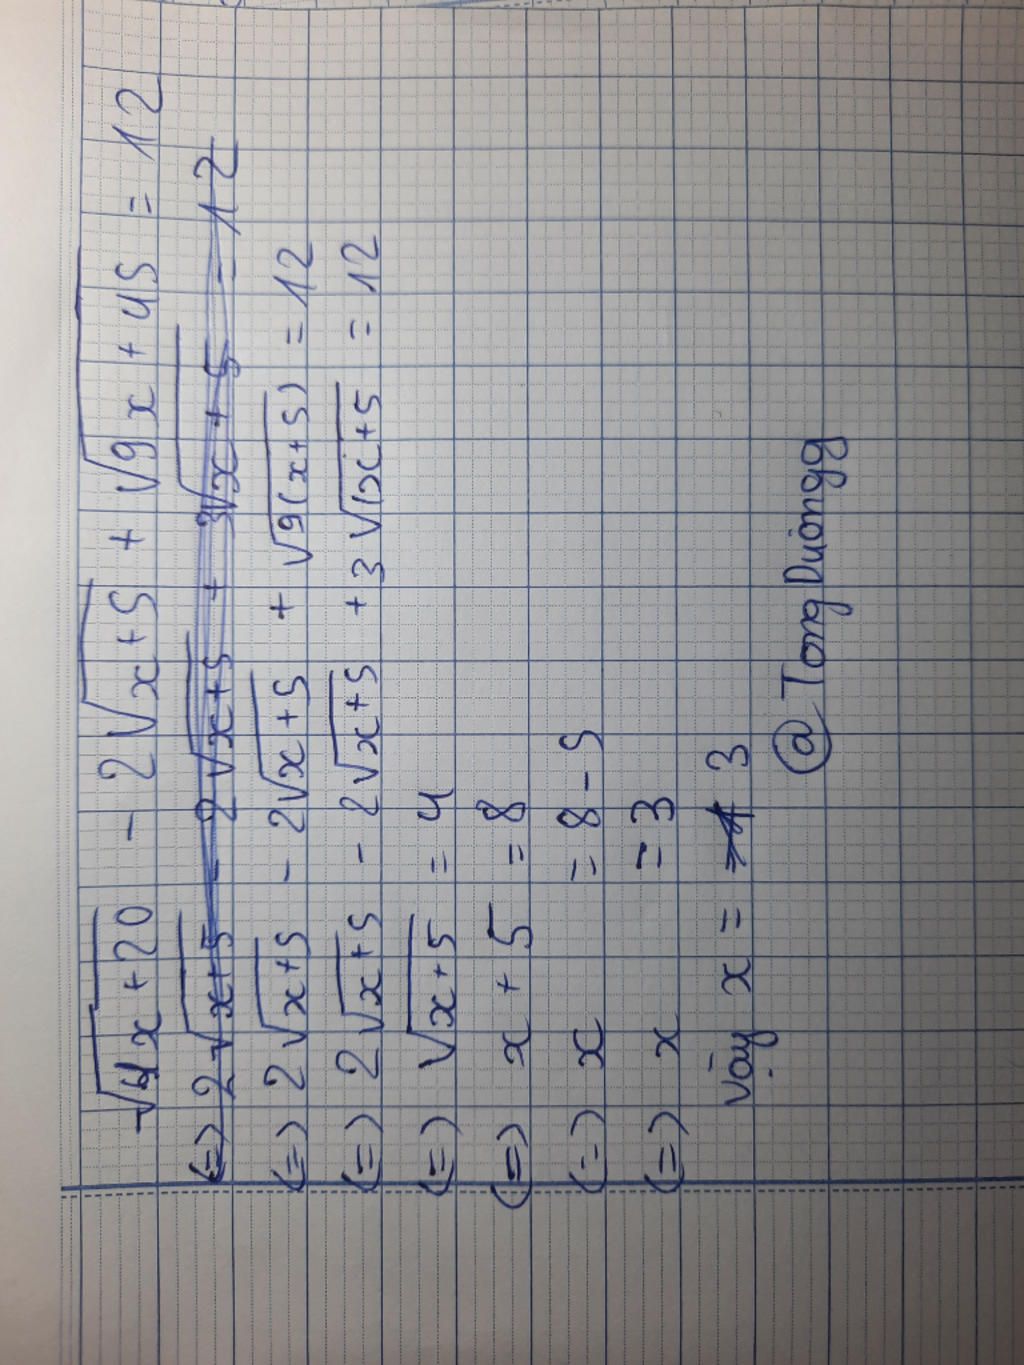 √4x+20 - 2√x+5 + √9x+45 = 12
(=) 2√x+5 - 2√x+5 + 3√x+5 = 12
(=) 2√x+5 - 2√x+5 + √9(x+5) = 12
(=) 2√x+5 - 2√x+5 + 3√(x+5 = 12
(=) √x+5 = 4
(=) x + 5 = 8
(=) x = 8-5
(=) x = 3
Vậy x = 3
@TongDuongg